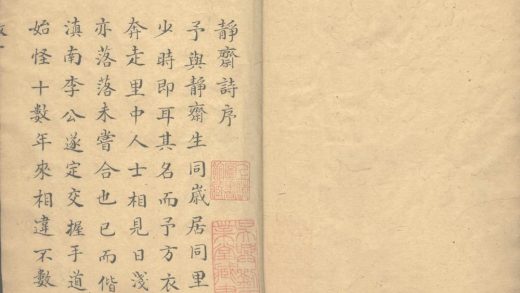 靜齋詩序
予與靜齋生同歲居同里
少時即耳其名而予方衣
奔走里中人士相見日淺
亦落落未嘗合也已而偕
滇南李公遂定交握手道
始怪十數年來相違不數